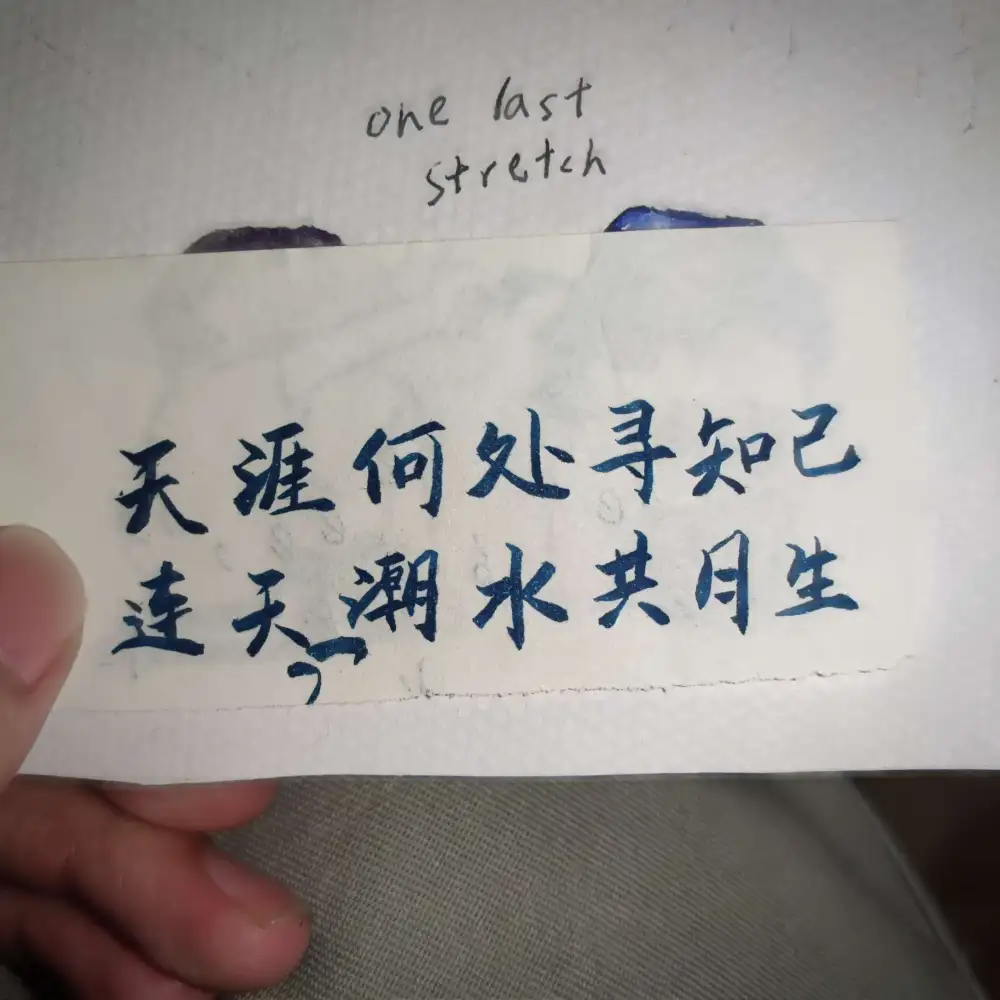 one last
stretch
天涯何处寻知己
连天潮水共月生